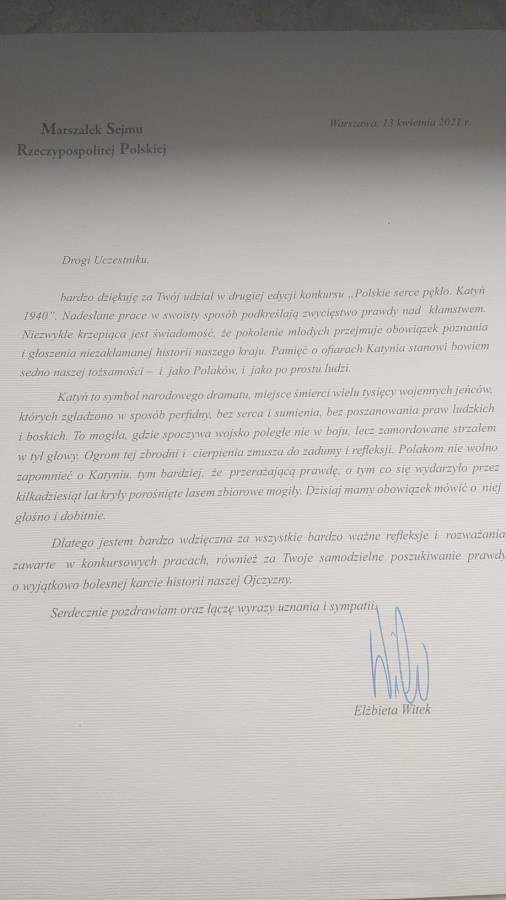 Marszałek Sejmu
Rzeczypospolitej Polskiej
Warszawa, 13 kwietnia 2021 r.
Drogi Uczestniku,
bardzo dziękuję za Twój udział w drugiej edycji konkursu „Polskie serce pękło. Katyń
1940”. Nadesłane prace w swoisty sposób podkreślają zwycięstwo prawdy nad kłamstwem.
Niezwykle krzepiąca jest świadomość, że pokolenie młodych przejmuje obowiązek poznania
i głoszenia niezakłamanej historii naszego kraju. Pamięć o ofiarach Katynia stanowi bowiem
sedno naszej tożsamości – i jako Polaków, i jako po prostu ludzi.
Katyń to symbol narodowego dramatu, miejsce śmierci wielu tysięcy wojennych jeńców,
których zgładzono w sposób perfidny, bez serca i sumienia, bez poszanowania praw ludzkich
i boskich. To mogiła, gdzie spoczywa wojsko poległe nie w boju, lecz zamordowane strzałem
w tył głowy. Ogrom tej zbrodni i cierpienia zmusza do zadumy i refleksji. Polakom nie wolno
zapomnieć o Katyniu, tym bardziej, że przerażającą prawdę, o tym co się wydarzyło przez
kilkadziesiąt lat kryły porośnięte lasem zbiorowe mogiły. Dzisiaj mamy obowiązek mówić o niej
głośno i dobitnie.
Dlatego jestem bardzo wdzięczna za wszystkie bardzo ważne refleksje i rozważania
zawarte w konkursowych pracach, również za Twoje samodzielne poszukiwanie prawdy
o wyjątkowo bolesnej karcie historii naszej Ojczyzny.
Serdecznie pozdrawiam oraz łączę wyrazy uznania i sympatii,
Elżbieta Witek